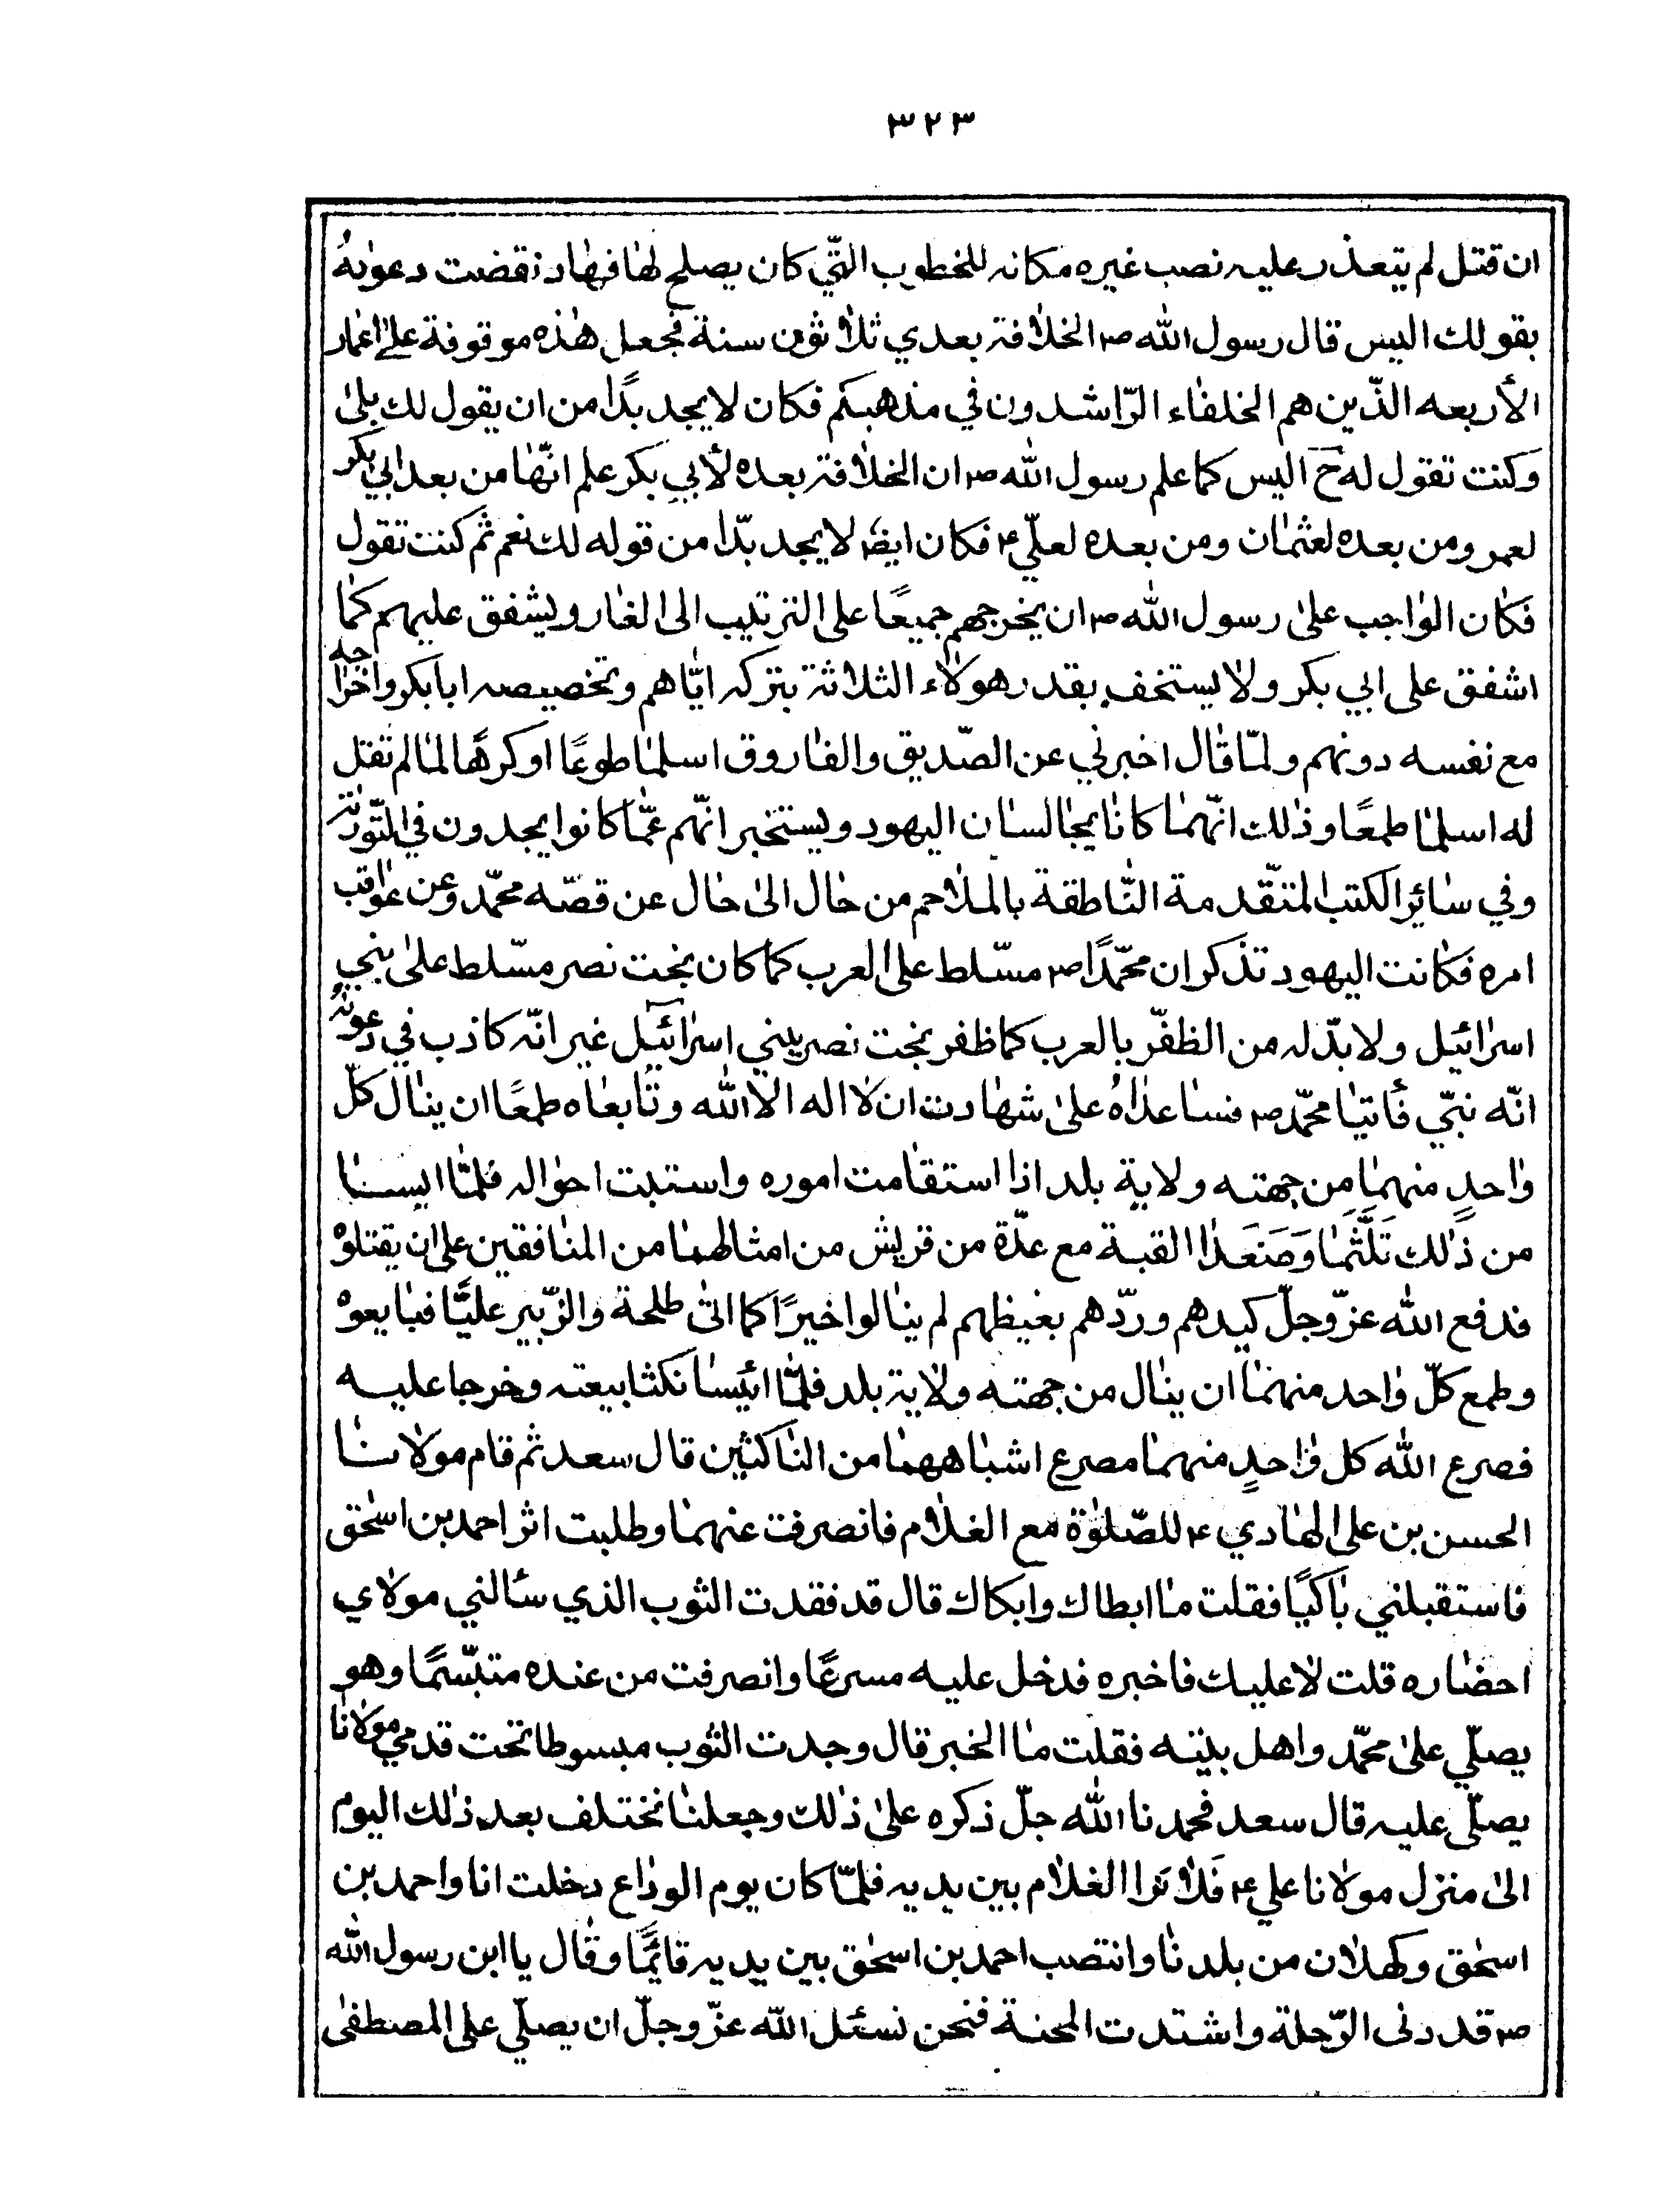 ٣٢٣
ان قتل لم يتعذر عليه نصب غيره مكانه للخطوب التّي كان يصلح لها فهاد نقضت دعوٰىهُ
بقولك اليس قال رسول الله ص الخلافة بعدي ثلاثون سنة فجعل هٰذه موقوفة علىٰ اعمار
الأربعه الذّين هم الخلفاء الرّاشدون في مذهبكم فكان لا يجد بدًا من ان يقول لك بلىٰ
وكنت تقول له حَ اليس كما علم رسول الله ص ان الخلافة بعده لأبي بكر علم انّها من بعد ابي بكر
لعمر ومن بعده لعثمان ومن بعده لعلّي ع فكان ايضًا لا يجد بدّا من قوله لك نعم ثم كنت تقول
فكان الواجب علىٰ رسول الله ص ان يخرجهم جميعًا على الترتيب الى الغار ويشفق عليهم كما
اشفق على ابي بكر ولا يستخف بقدر هولاء الثلاثة بتركه ايّاهم وتخصيصه ابا بكر واخراجه
مع نفسه دونهم ولمّا قال اخبرني عن الصّديق والفاروق اسلما طوعًا او كرهًا لما لم تقل
له اسلما طمعًا وذٰلك انّهما كانا يجالسان اليهود ويستخبر انّهم عمّا كانوا يجدون في التّورٰىة
وفي سائر الكتب المتقّدمة النّاطقة بالملاحم من حال الىٰ حال عن قصّه محمّد وعن عواقب
امره فكانت اليهود تذكر ان محمّدًا ص مسّلط على العرب كما كان بخت نصر مسّلط علىٰ بني
اسرائيل ولا بدّ له من الظفّر بالعرب كما ظفر بخت نصر ببني اسرائيل غير انّه كاذب في دعوٰىه
انّه نبّي فأتيا محمّد ص فساعداهُ علىٰ شهادت ان لا اله الا الله وتابعاه طمعًا ان ينال كلّ
واحدٍ منهما مِن جهته ولاية بلد اذا استقامت اموره واستبت احواله فلمّا ايسا
من ذٰلك تَلَثَّمَا وَصَعَدٰا القبة مع عدّة من قريش من امثالهما من المنافقين على ان يقتلوه
فدفع الله عزّ وجلّ كيدهم وردّهم بغيظهم لم ينالوا خيرًا كما اتىٰ طلحة والزّبير عليًّا فبايعوه
وطمع كلّ واحد منهما ان ينال من جهته ولاية بلد فلمّا ائيسا نكثا بيعته وخرجا عليه
فصرع الله كل واحدٍ منهما مصرع اشباههما من الناكثين قال سعد ثم قام مولانا
الحسن بن على الهادي ع للصّلوٰة مع الغلام فانصرفت عنهما وطلبت اثر احمد بن اسحٰق
فاستقبلني باكيًا فقلت ما ابطاك وابكاك قال قد فقدت الثوب الذي سئالني مولاي
احضاره قلت لا عليك فاخبره فدخل عليه مسرعًا وانصرفت من عنده متبسّمًا وهو
يصلّي علىٰ محمّد واهل بيته فقلت ما الخبر قال وجدت الثوب مبسوطا تحت قدمي مولانا
يصلّى عليه قال سعد فحمدنا الله جلّ ذكره علىٰ ذٰلك وجعلنا نختلف بعد ذٰلك اليوم
الىٰ منزل مولانا علي ع فَلا نَرا الغلام بين يديه فلمّا كان يوم الوداع دخلت انا واحمد بن
اسحٰق وكهلان من بلدنا وانتصب احمد بن اسحٰق بين يديه قائِمًا وقال يا ابن رسول الله
ص قد دنى الرّحلة واشتدت المحنة فنحن نسئل الله عزّ وجلّ ان يصلّي على المصطفىٰ